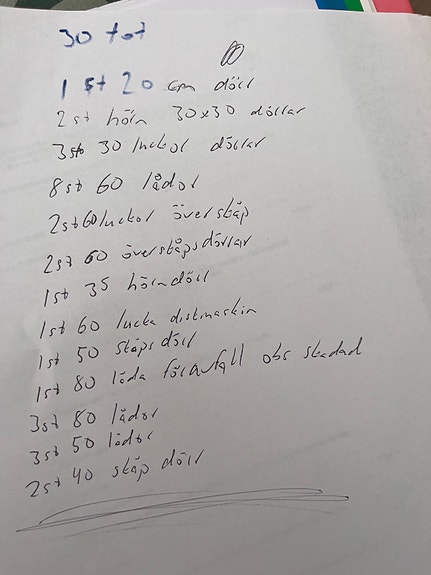 30 tot
1 st 20 cm dörr
2st hörn 30x30 dörrar
3st 30 luckor dörrar
8st 60 lådor
2st60luckor överskåp
2st 60 överskåpsdörrar
1st 35 hörndörr
1st 60 lucka diskmaskin
1st 50 skåpsdörr
1st 80 låda för avfall obs skadad
3st 80 lådor
3st 50 lådor
2st 40 skåp dörr